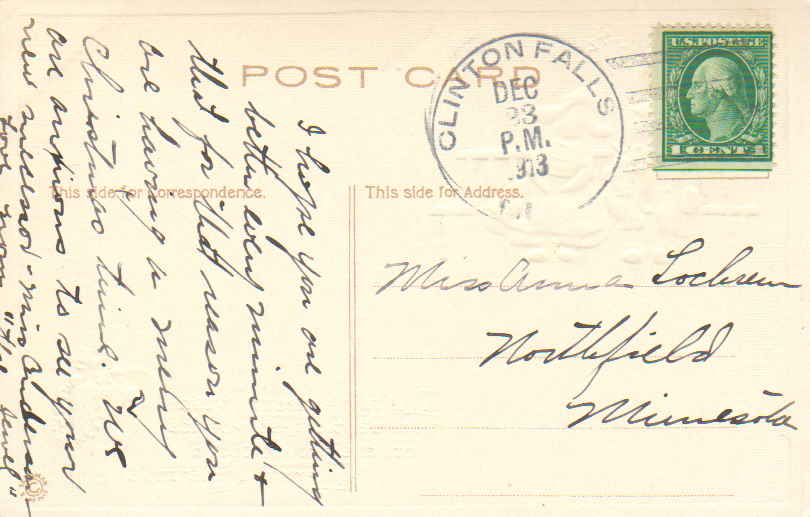 POST CARD
CLINTON FALLS
DEC
23
P.M.
1913
U.S. POSTAGE
1 CENT 1
This side for Correspondence.
This side for Address.
I hope you are getting
better every minute &
that for that reason you
are having a merry
Christmas time. We
are anxious to see your
new milliner - Miss Anderson
from "The Jewel"
Miss Anna Lochren
Northfield
Minnesota